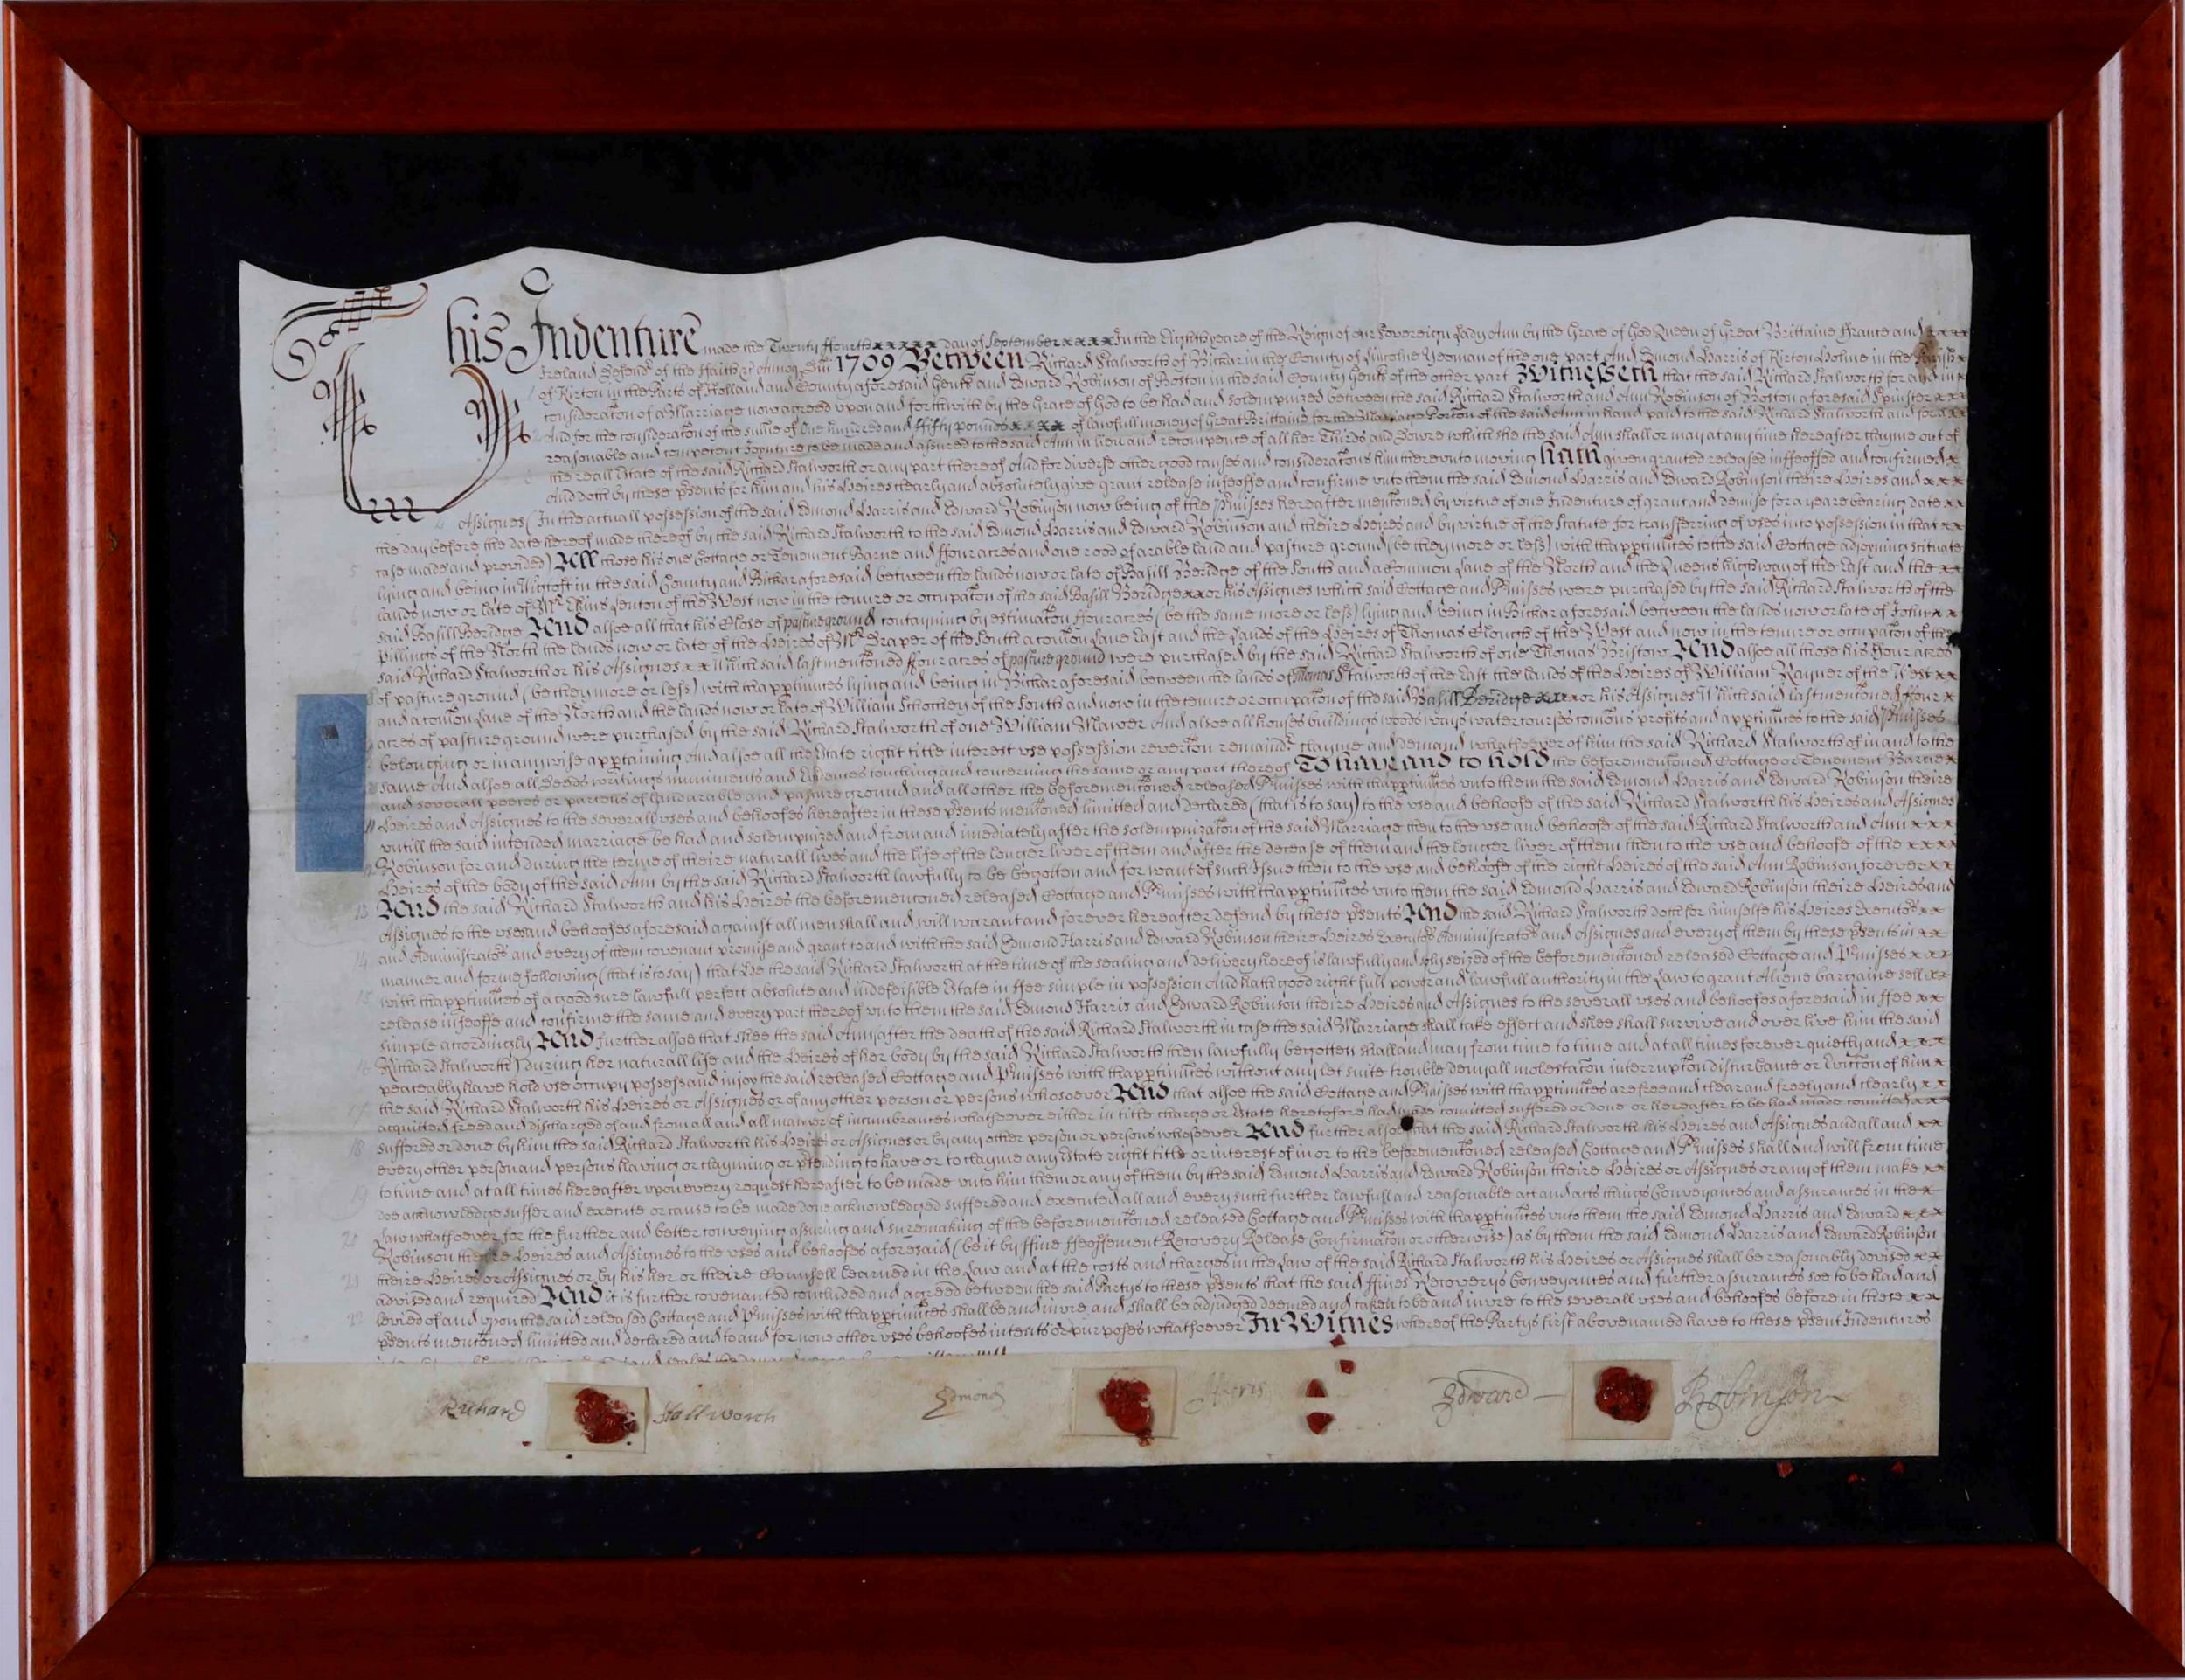 This Indenture made the Twenty ffourth xxxxx day of September xxxx In the Eighth yeare of the Reign of our Sovereign Lady Ann by the Grace of God Queen of Great Brittaine ffrance and xxxx
Ireland Defendr of the ffaith &c Annoq Dni 1709 Between Richard Stalworth of Bickar in the County of Lincolne Yeoman of the one part And Edmond Harris of Kirton Holme in the Parish x
of Kirton in the Parts of Holland and County aforesaid Gentt and Edward Robinson of Boston in the said County Gentt of the other part Witnesseth that the said Richard Stalworth for and in x
consideracon of a Marriage now agreed upon and forthwith by the Grace of God to be had and solempnized between the said Richard Stalworth and Ann Robinson of Boston aforesaid Spinster xxx
And for the consideracon of the summe of One hundred and ffifty pounds xxxx of lawfull money of Great Brittaine for the Marriage Porcon of the said Ann in hand paid to the said Richard Stalworth and for a xx
reasonable and competent Joynture to be made and assured to the said Ann in lieu and recompence of all her Thirds and Dowre which she the said Ann shall or may at any time hereafter clayme out of
the reall Estate of the said Richard Stalworth or any part thereof And for diverse other good causes and consideracons him thereunto moving hath given granted released infeoffed and confirmed x
And doth by these psents for him and his Heires clearly and absolutely give grant release infeoffe and confirme unto them the said Edmond Harris and Edward Robinson theire Heires and xxx
Assignes (In the actuall possession of the said Edmond Harris and Edward Robinson now being of the Pmisses hereafter menconed by virtue of one Indenture of grant and demise for a yeare bearing date xx
the day before the date hereof made thereof by the said Richard Stalworth to the said Edmond Harris and Edward Robinson and theire Heires and by virtue of the Statute for transferring of uses into possession in that xx
case made and provided) All those his one Cottage or Tenement Barne and ffour acres and one rood of arable land and pasture ground (be they more or less) with thapptinnces to the said Cottage adjoyning scituate
lying and being in Wigtoft in the said County and Bickar aforesaid between the lands now or late of Basill Beridge of the South and a Common Lane of the North and the Queens highway of the East and the xx
lands now or late of Mr Lenton of the West now in the tenure or occupacon of the said Basill Beridge xx or his Assignes which said Cottage and Pmisses were purchased by the said Richard Stalworth of the
said Basill Beridge And alsoe all that his Close of pasture ground contayning by estimacon ffour acres (be the same more or less) lying and being in Bickar aforesaid between the lands now or late of John xx
Pillings of the North the lands now or late of the Heires of Mr Draper of the South a comon Lane East and the Lands of the Heires of Thomas Clough of the West and now in the tenure or occupacon of the
said Richard Stalworth or his Assignes xx Which said last menconed ffour acres of pasture ground were purchased by the said Richard Stalworth of one Thomas Bristow And alsoe all those his ffour acres
of pasture ground (be they more or less) with thapptinnces lying and being in Bickar aforesaid between the lands of Thomas Stalworth of the East the lands of the Heires of William Rayner of the West xx
and a comon Lane of the North and the lands now or late of William Schorthey of the South and now in the tenure or occupacon of the said Basill Beridge xxx or his Assignes Which said last menconed ffour x
acres of pasture ground were purchased by the said Richard Stalworth of one William Mawer And alsoe all houses buildings woods ways watercourses comons profits and apptinnces to the said Pmisses
belonging or in any wise apptaining And alsoe all the Estate right title interest use possession revercon remaindr clayme and demand whatsoever of him the said Richard Stalworth of in and to the
same And alsoe all Deeds writings muniments and Evidences touching and concerning the same or any part thereof To have and to hold the beforemenconed Cottage or Tenement Barne x
and severall peeces or parcells of land arable and pasture ground and all other the beforemenconed released Pmisses with thapptinnces unto them the said Edmond Harris and Edward Robinson theire
Heires and Assignes to the severall uses and behoofes hereafter in these psents menconed limited and declared (that is to say) to the use and behoofe of the said Richard Stalworth his Heires and Assignes
untill the said intended marriage be had and solempnized and from and imediately after the solempnizacon of the said Marriage then to the use and behoofe of the said Richard Stalworth and Ann xxx
Robinson for and during the terme of theire naturall lives and the life of the longer liver of them and after the decease of them and the longer liver of them then to the use and behoofe of the xxxx
Heires of the body of the said Ann by the said Richard Stalworth lawfully to be begotten and for want of such Issue then to the use and behoofe of the right Heires of the said Ann Robinson forever xx
And the said Richard Stalworth and his Heires the beforemenconed released Cottage and Pmisses with thapptinnces unto them the said Edmond Harris and Edward Robinson theire Heires and
Assignes to the uses and behoofes aforesaid against all men shall and will warant and forever hereafter defend by these psents And the said Richard Stalworth doth for himselfe his Heires Executors xx
and Administrators and every of them covenant promise and grant to and with the said Edmond Harris and Edward Robinson theire Heires Executors Administrators and Assignes and every of them by these psents in xx
manner and forme following (that is to say) that He the said Richard Stalworth at the time of the sealing and delivery hereof is lawfully and soly seized of the beforemenconed released Cottage and Pmisses xxx
with thapptinnces of a good sure lawfull perfect absolute and indefeisible Estate in ffee simple in possession And hath good right full power and lawfull authority in the Law to grant Aliene bargaine sell xx
release infeoffe and confirme the same and every part thereof unto them the said Edmond Harris and Edward Robinson theire Heires and Assignes to the severall uses and behoofes aforesaid in ffee xx
simple accordingly And further alsoe that shee the said Ann (after the death of the said Richard Stalworth in case the said Marriage shall take effect and shee shall survive and over live him the said
Richard Stalworth) during her naturall life and the Heires of her body by the said Richard Stalworth then lawfully begotten shall and may from time to time and at all times forever quietly and xxx
peaceably have hold use occupy possess and injoy the said released Cottage and Pmisses with thapptinnces without any let suite trouble denyall molestacon interrupcon disturbance or Eviccon of him x
the said Richard Stalworth his Heires or Assignes or of any other person or persons whosoever And that alsoe the said Cottage and Pmisses with thapptinnces are free and clear and freely and clearly xx
acquitted freed and discharged of and from all and all manner of incumbrances whatsoever either in title charge or Estate heretofore had made comitted suffered or done or hereafter to be had made comitted xxx
suffered or done by him the said Richard Stalworth his Heires or Assignes or by any other person or persons whosoever And further alsoe that the said Richard Stalworth his Heires and Assignes and all and xx
every other person and persons having or clayming or ptending to have or to clayme any Estate right title or interest of in or to the beforemenconed released Cottage and Pmisses shall and will from time
to time and at all times hereafter upon every request hereafter to be made unto him them or any of them by the said Edmond Harris and Edward Robinson theire Heires or Assignes or any of them make xx
doe acknowledge suffer and execute or cause to be made done acknowledged suffered and executed all and every such further lawfull and reasonable act and acts things Conveyances and assurances in the x
Law whatsoever for the further and better conveying assuring and suremaking of the beforemenconed released Cottage and Pmisses with thapptinnces unto them the said Edmond Harris and Edward xxx
Robinson theire Heires and Assignes to the uses and behoofes aforesaid (be it by ffine ffeoffement Recovery Release Confirmacon or otherwise) as by them the said Edmond Harris and Edward Robinson
theire Heires or Assignes or by his her or theire Counsell learned in the Law and at the costs and charges in the Law of the said Richard Stalworth his Heires or Assignes shall be reasonably devised xx
advised and required And it is further covenanted concluded and agreed between the said Partys to these psents that the said ffines Recoverys Conveyances and further assurances soe to be had and
levied of and upon the said released Cottage and Pmisses with thapptinnces shall be and inure and shall be adjudged deemed and taken to be and inure to the severall uses and behoofes before in these xx
psents menconed limitted and declared and to and for none other uses behoofes intents or purposes whatsoever In Witnes whereof the Partys first abovenamed have to these psent Indentures
Richard Stallworth Edmond Harris Edward Robinson